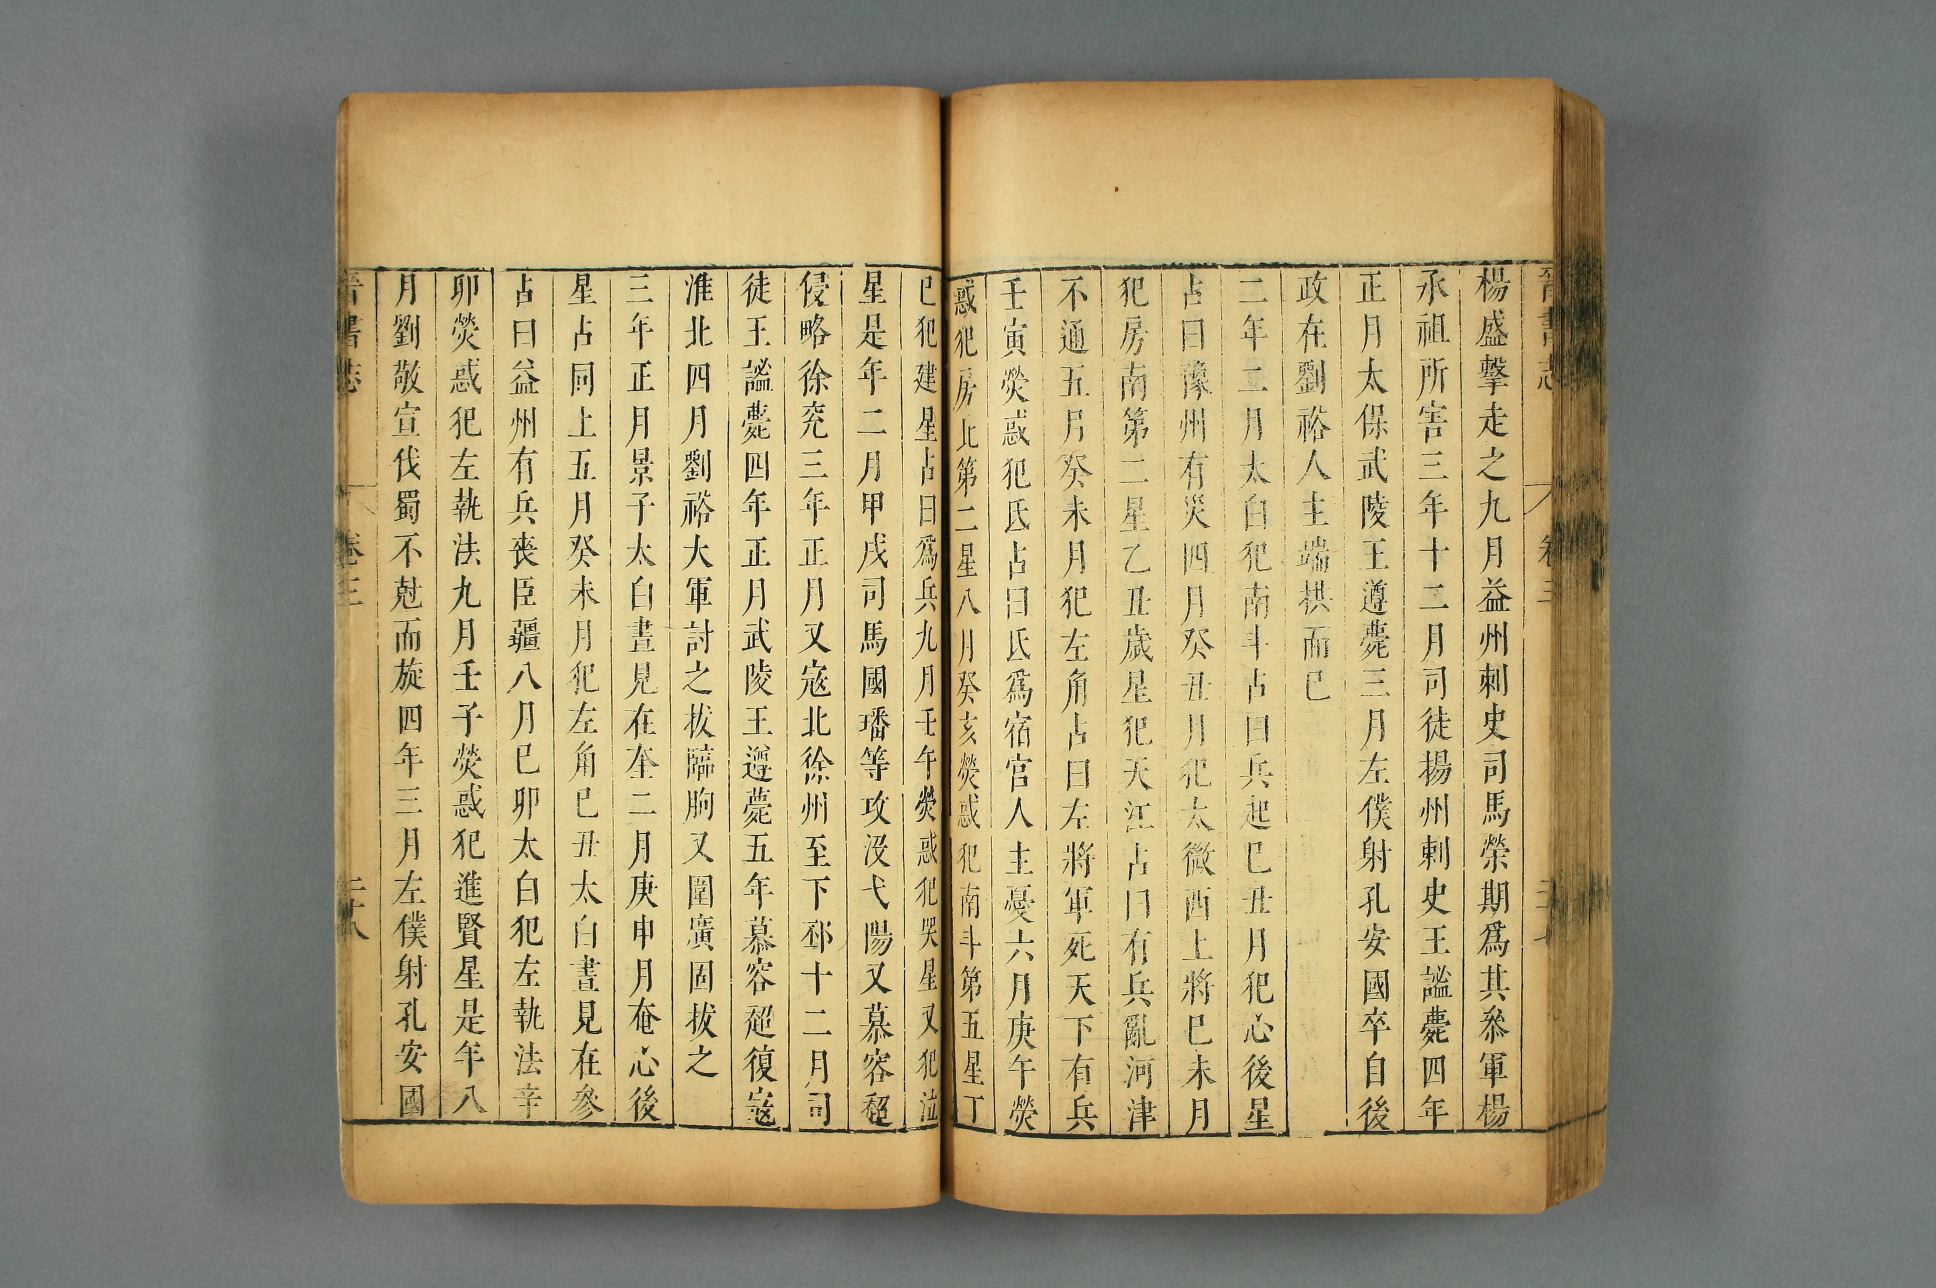 晉書志 卷三
楊盛擊走之九月益州刺史司馬榮期爲其叅軍楊
承祖所害三年十二月司徒揚州刺史王謐薨四年
正月太保武陵王遵薨三月左僕射孔安國卒自後
政在劉裕人主端拱而已
二年二月太白犯南斗占曰兵起己丑月犯心後星
占曰豫州有災四月癸丑月犯太微西上將己未月
犯房南第二星乙丑歲星犯天江占曰有兵亂河津
不通五月癸未月犯左角占曰左將軍死天下有兵
壬寅熒惑犯氐占曰氐爲宿官人主憂六月庚午熒
惑犯房北第二星八月癸亥熒惑犯南斗第五星丁
巳犯建星占曰爲兵九月壬午熒惑犯哭星又犯泣
星是年二月甲戌司馬國璠等攻沒弋陽又慕容超
侵略徐兖三年正月又寇北徐州至下邳十二月司
徒王謐薨四年正月武陵王遵薨五年慕容超復寇
淮北四月劉裕大軍討之拔臨朐又圍廣固拔之
三年正月景子太白晝見在奎二月庚申月奄心後
星占同上五月癸未月犯左角己丑太白晝見在參
占曰益州有兵喪臣疆八月己卯太白犯左執法辛
卯熒惑犯左執法九月壬子熒惑犯進賢星是年八
月劉敬宣伐蜀不尅而旋四年三月左僕射孔安國
晉書志 卷三 二十八